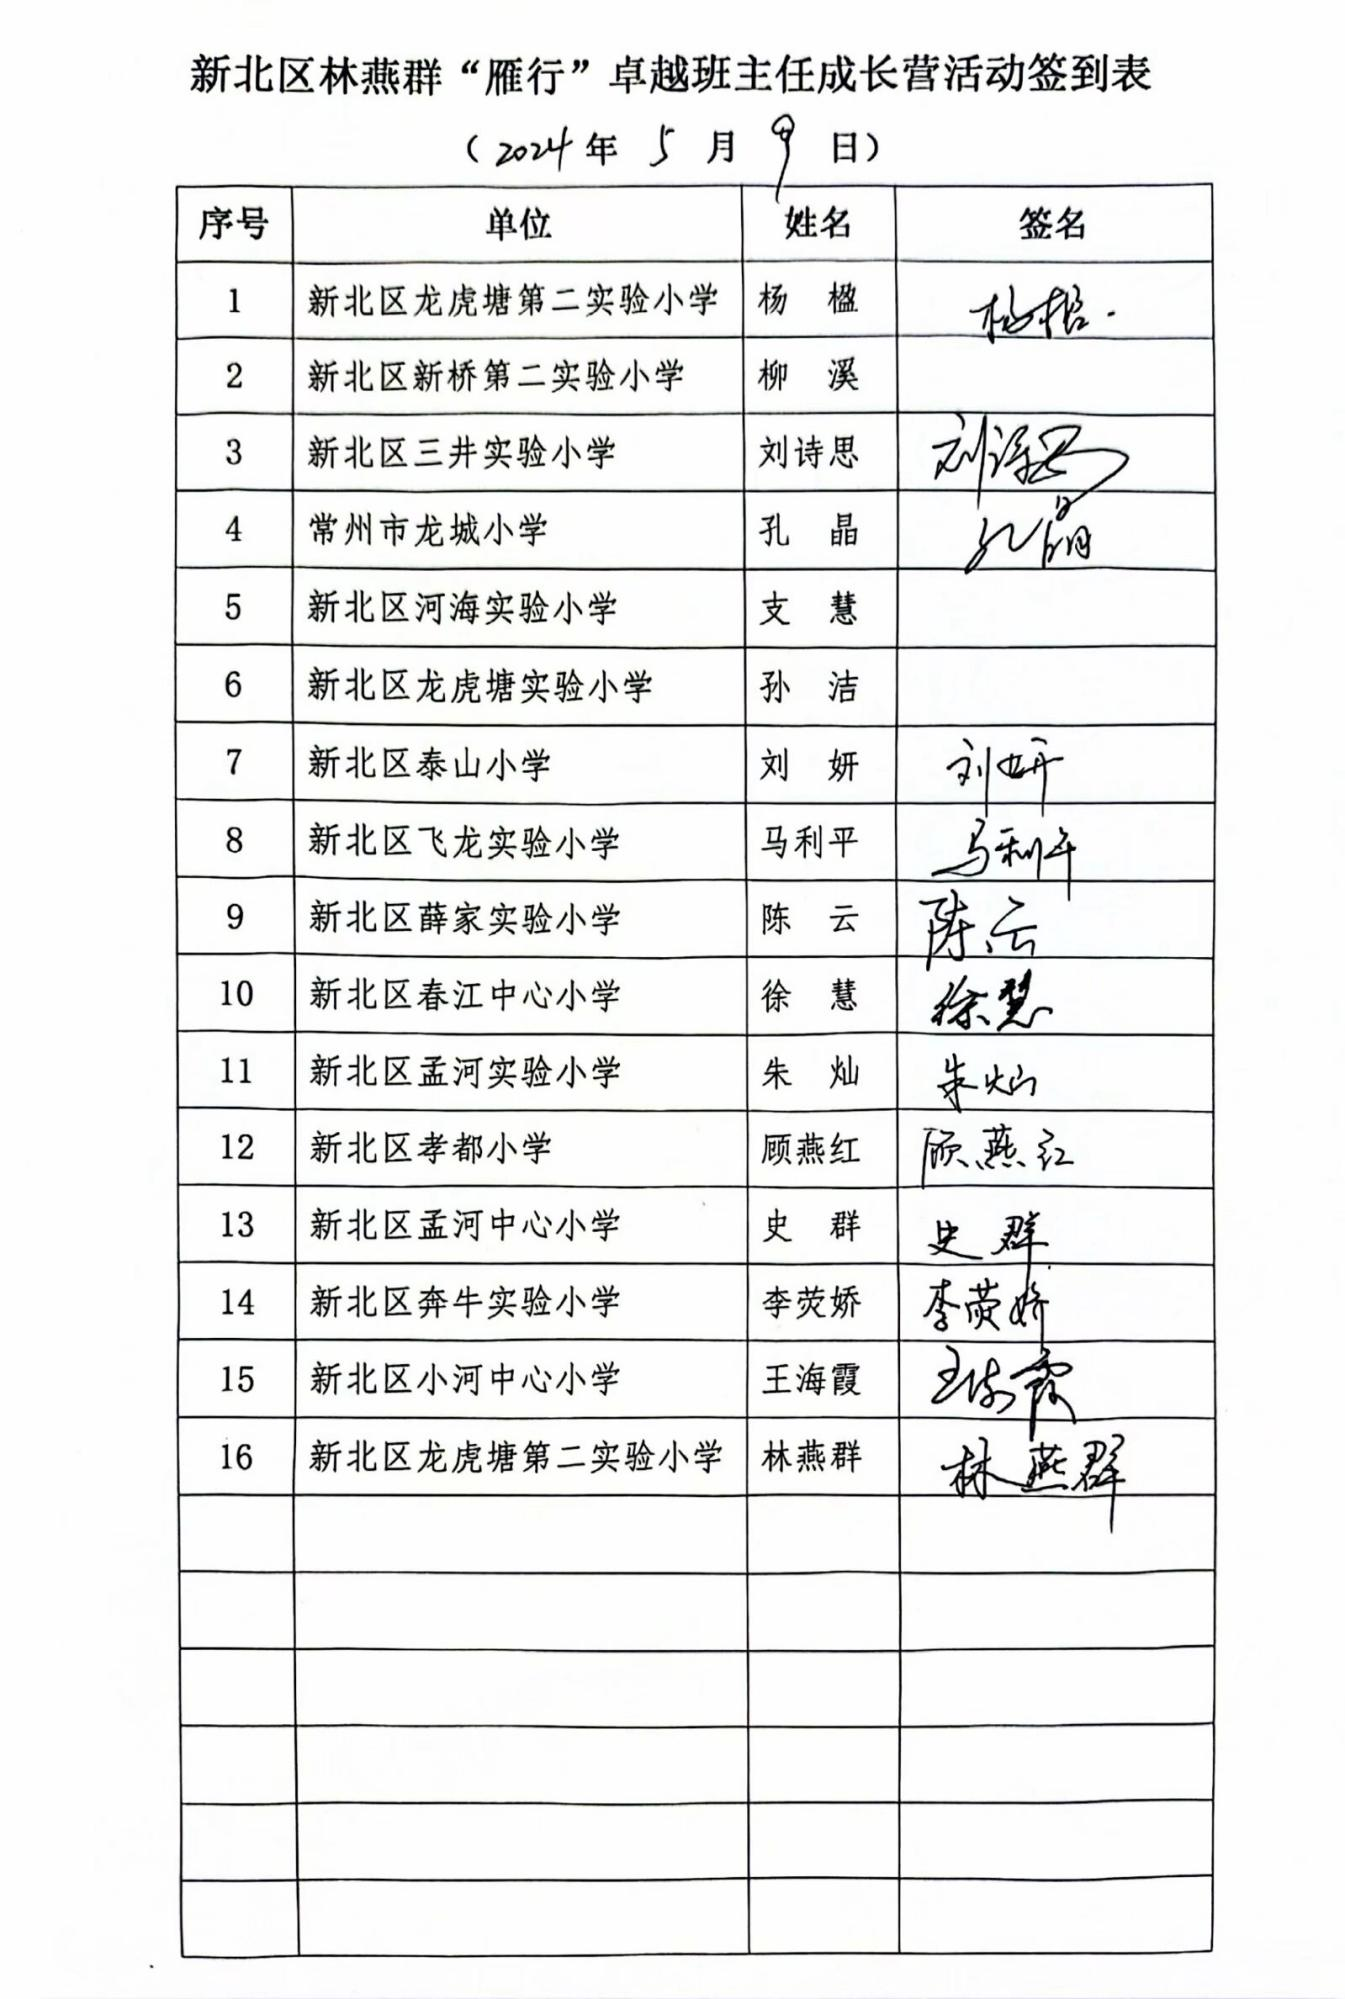 新北区林燕群“雁行”卓越班主任成长营活动签到表
（2024年 5 月 9 日）
序号 单位 姓名 签名
1 新北区龙虎塘第二实验小学 杨 楹 杨楹
2 新北区新桥第二实验小学 柳 溪
3 新北区三井实验小学 刘诗思 刘诗思
4 常州市龙城小学 孔 晶 孔晶
5 新北区河海实验小学 支 慧
6 新北区龙虎塘实验小学 孙 洁
7 新北区泰山小学 刘 妍 刘妍
8 新北区飞龙实验小学 马利平 马利平
9 新北区薛家实验小学 陈 云 陈云
10 新北区春江中心小学 徐 慧 徐慧
11 新北区孟河实验小学 朱 灿 朱灿
12 新北区孝都小学 顾燕红 顾燕红
13 新北区孟河中心小学 史 群 史群
14 新北区奔牛实验小学 李荧娇 李荧娇
15 新北区小河中心小学 王海霞 王海霞
16 新北区龙虎塘第二实验小学 林燕群 林燕群